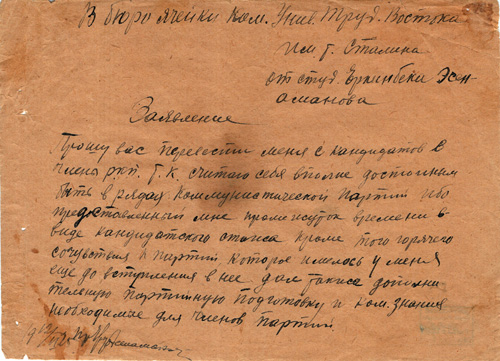 В бюро ячейки Ком. Унив. Труд. Востока
им т. Сталина
от студ. Еркинбека Эсен-
аманова
Заявление
Прошу вас перевести меня с кандидатов в
члена ркп. Т.к. считаю себя вполне достойным
быть в рядах Коммунистической Партии ибо
предоставленный мне промежуток времени в
виде кандидатского стажа кроме того горячего
сочувствия к партии которое имелось у меня
еще до вступления в нее дал также дополни
тельную партийную подготовку и ком. знания
необходимые для членов партии